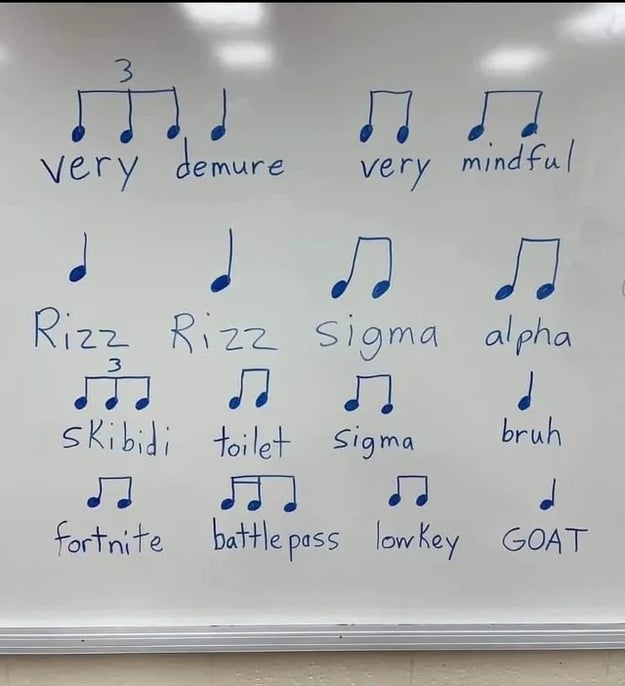 3
very demure very mindful
Rizz Rizz sigma alpha
3
skibidi toilet sigma bruh
fortnite battle pass lowkey GOAT